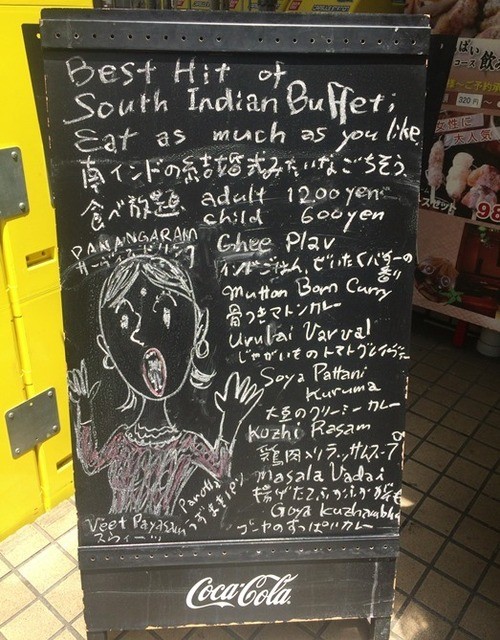 Best Hit of
South Indian Buffet;
Eat as much as you like.
南インドの結婚式みたいなごちそう
食べ放題 adult 1200yen
child 600yen
PANANGARAM
Ghee Plav
インドごはん、ぜいたくバターの
香り
Mutton Born Curry
骨つきマトンカレー
Urulai Varval
じゃがいものトマトグレイヴィー
Soya Pattani
Kuruma
大豆のクリーミーカレー
Kozhi Rasam
鶏肉入りラッサムスープ
Masala Vadai
揚げ
Goya Kuzhambu
ゴーヤのすっぱいカレー
Parotta
うずまきパン
Veet Payasam
スウィーツ
Coca-Cola
320円
女性に
大人気
98